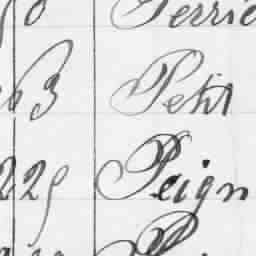 0 Perrie
63 Petit
229 Peign